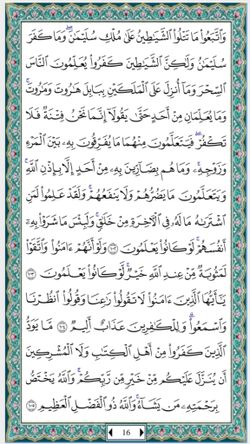 وَاتَّبَعُوا مَا تَتْلُوا الشَّيَاطِينُ عَلَىٰ مُلْكِ سُلَيْمَانَ ۖ وَمَا كَفَرَ
سُلَيْمَانُ وَلَٰكِنَّ الشَّيَاطِينَ كَفَرُوا يُعَلِّمُونَ النَّاسَ
السِّحْرَ وَمَا أُنزِلَ عَلَى الْمَلَكَيْنِ بِبَابِلَ هَارُوتَ وَمَارُوتَ ۚ
وَمَا يُعَلِّمَانِ مِنْ أَحَدٍ حَتَّىٰ يَقُولَا إِنَّمَا نَحْنُ فِتْنَةٌ فَلَا
تَكْفُرْ ۖ فَيَتَعَلَّمُونَ مِنْهُمَا مَا يُفَرِّقُونَ بِهِ بَيْنَ الْمَرْءِ
وَزَوْجِهِ ۚ وَمَا هُم بِضَارِّينَ بِهِ مِنْ أَحَدٍ إِلَّا بِإِذْنِ اللَّهِ ۚ
وَيَتَعَلَّمُونَ مَا يَضُرُّهُمْ وَلَا يَنفَعُهُمْ ۚ وَلَقَدْ عَلِمُوا لَمَنِ
اشْتَرَاهُ مَا لَهُ فِي الْآخِرَةِ مِنْ خَلَاقٍ ۚ وَلَبِئْسَ مَا شَرَوْا بِهِ
أَنفُسَهُمْ ۚ لَوْ كَانُوا يَعْلَمُونَ ١٠٢ وَلَوْ أَنَّهُمْ آمَنُوا وَاتَّقَوْا
لَمَثُوبَةٌ مِّنْ عِندِ اللَّهِ خَيْرٌ ۖ لَّوْ كَانُوا يَعْلَمُونَ ١٠٣
يَا أَيُّهَا الَّذِينَ آمَنُوا لَا تَقُولُوا رَاعِنَا وَقُولُوا انظُرْنَا
وَاسْمَعُوا ۗ وَلِلْكَافِرِينَ عَذَابٌ أَلِيمٌ ١٠٤ مَّا يَوَدُّ
الَّذِينَ كَفَرُوا مِنْ أَهْلِ الْكِتَابِ وَلَا الْمُشْرِكِينَ
أَن يُنَزَّلَ عَلَيْكُم مِّنْ خَيْرٍ مِّن رَّبِّكُمْ ۗ وَاللَّهُ يَخْتَصُّ
بِرَحْمَتِهِ مَن يَشَاءُ ۚ وَاللَّهُ ذُو الْفَضْلِ الْعَظِيمِ ١٠٥
16